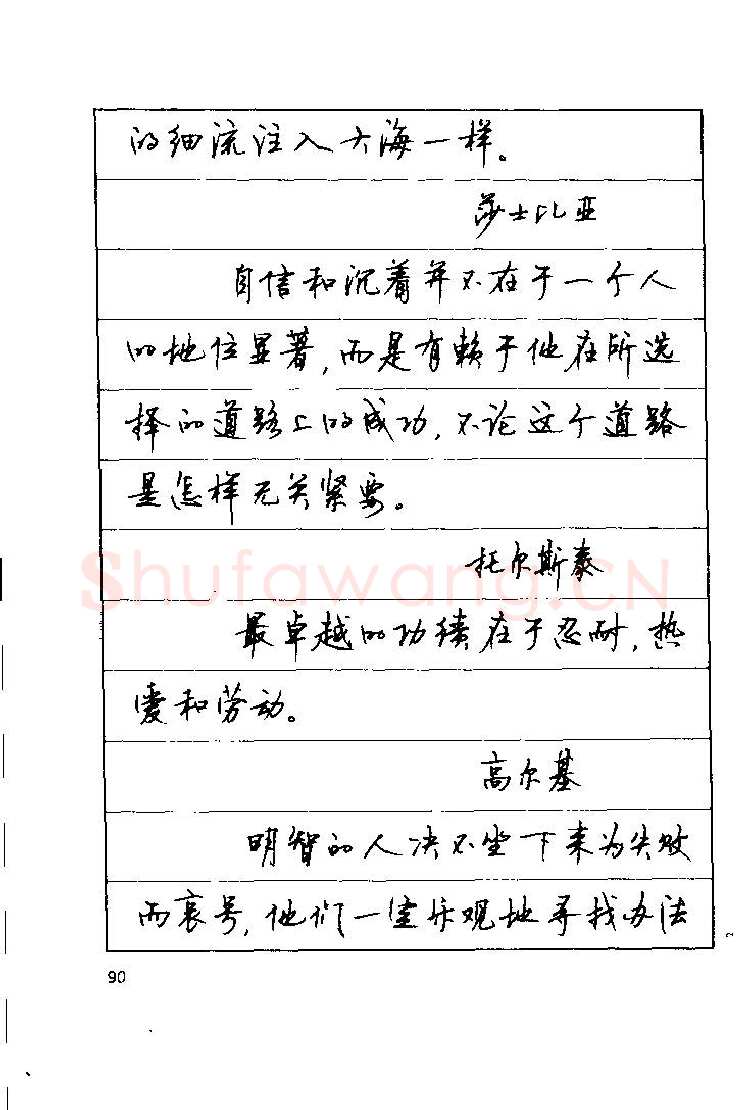 的细流注入大海一样。
莎士比亚
自信和沉着并不在于一个人
的地位显著,而是有赖于他在所选
择的道路上的成功,不论这个道路
是怎样无关紧要。
托尔斯泰
Shufawang.CN
最卓越的功绩在于忍耐,热
爱和劳动。
高尔基
明智的人决不坐下来为失败
而哀号,他们一定乐观地寻找办法
90